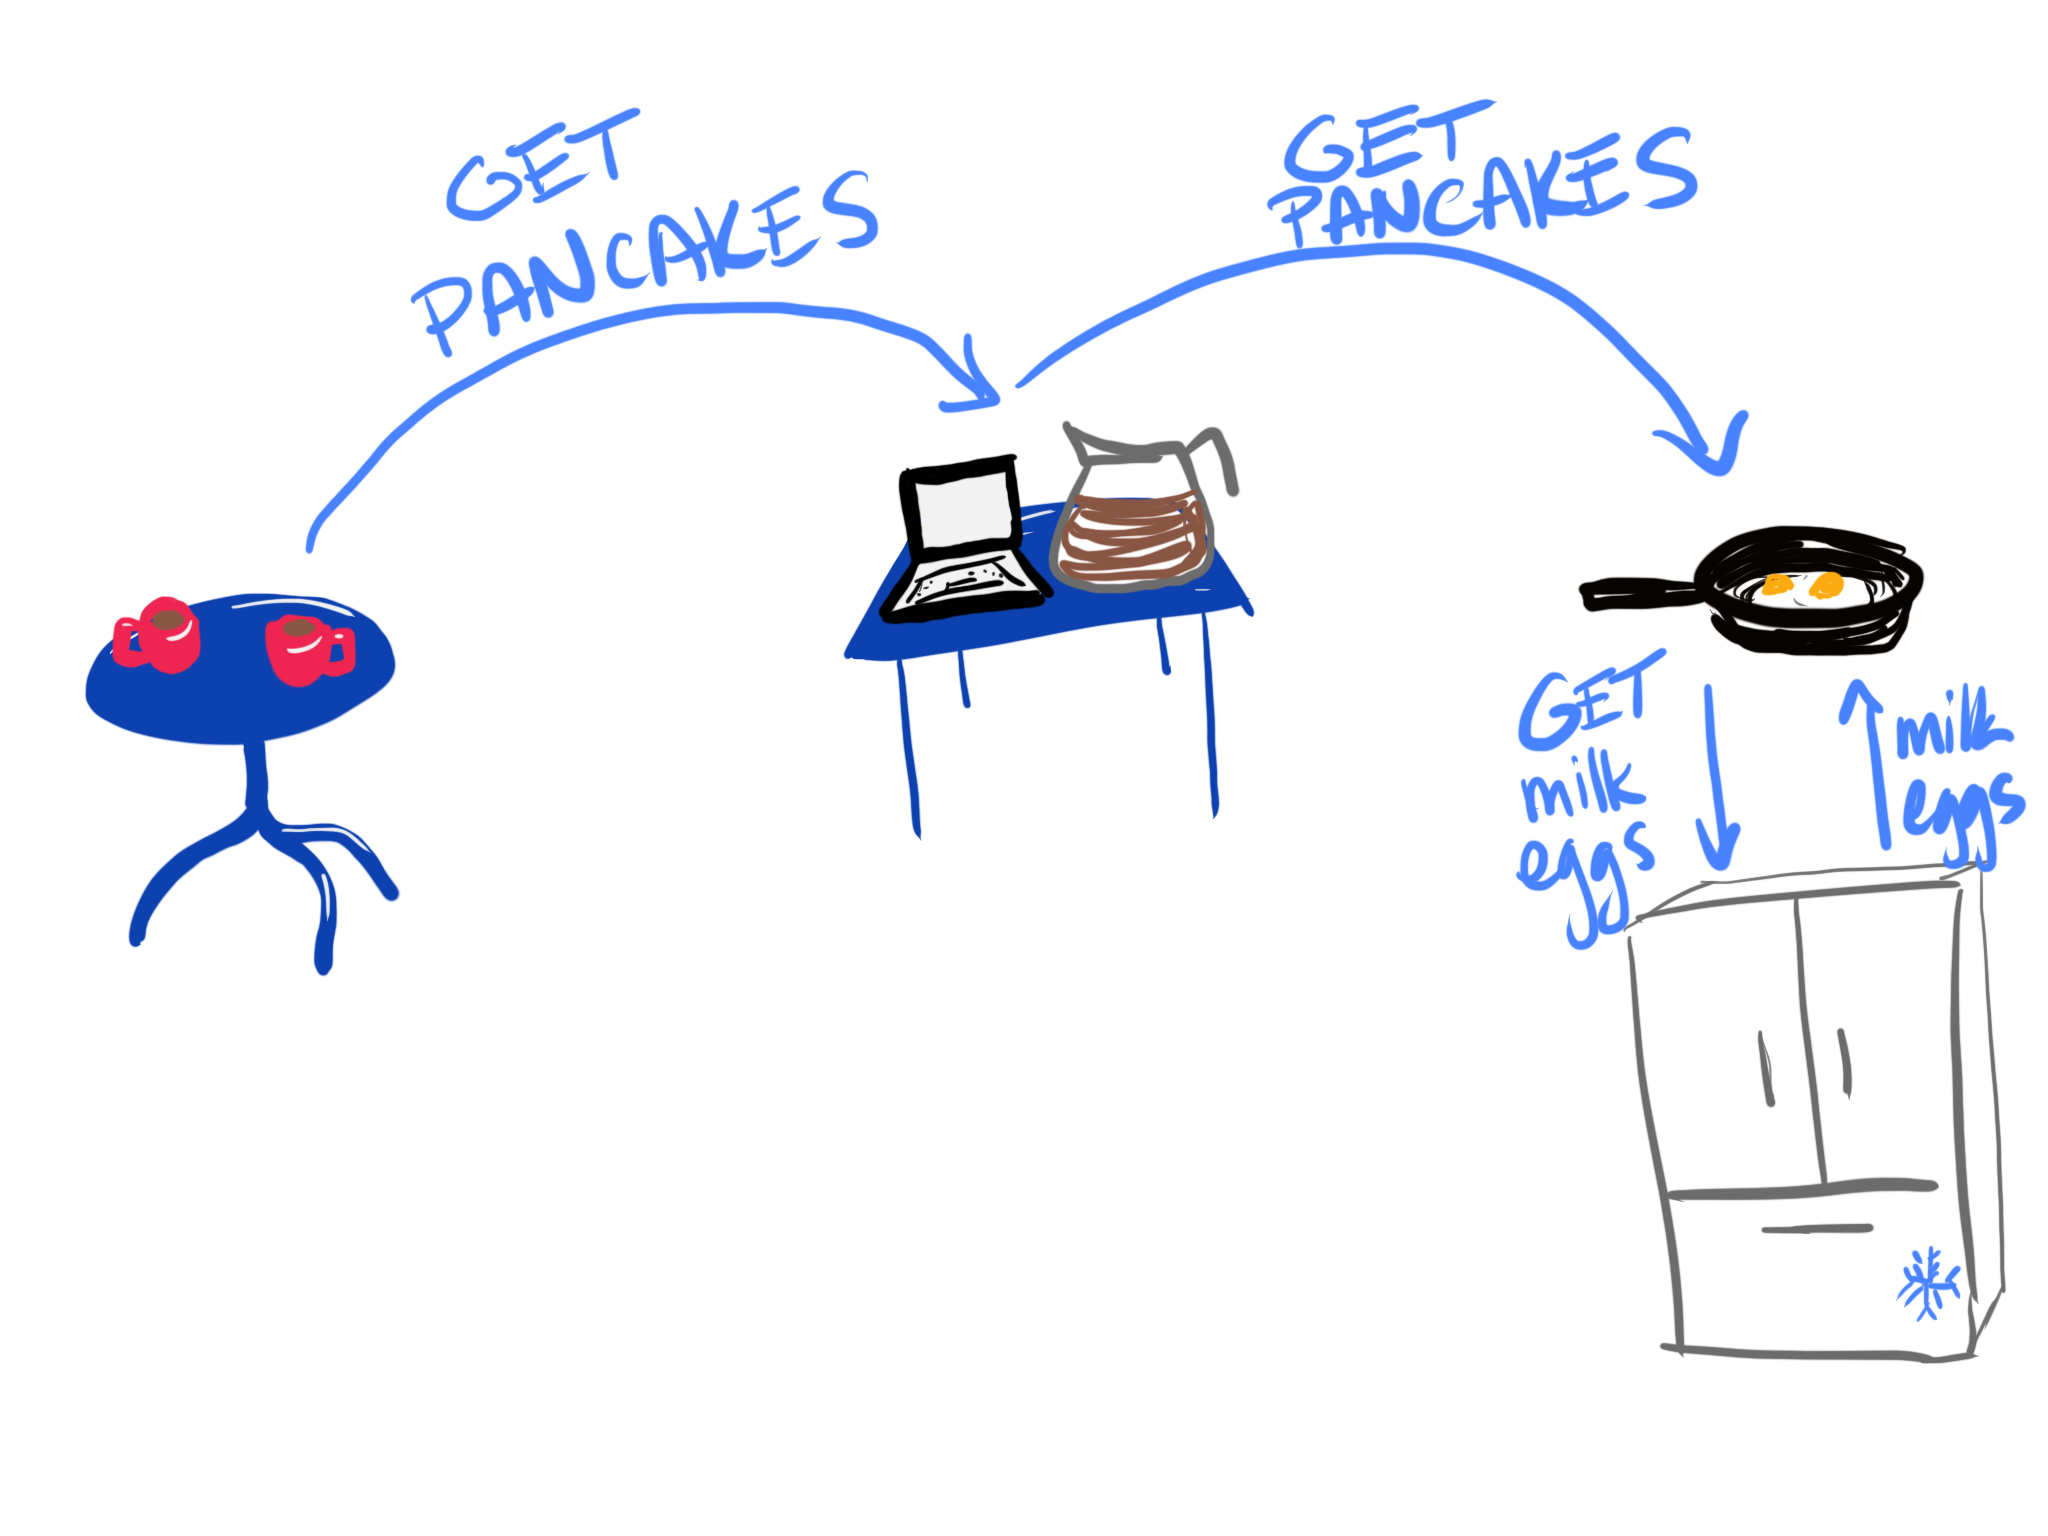 GET
PANCAKES
GET
PANCAKES
GET
milk
eggs
milk
eggs